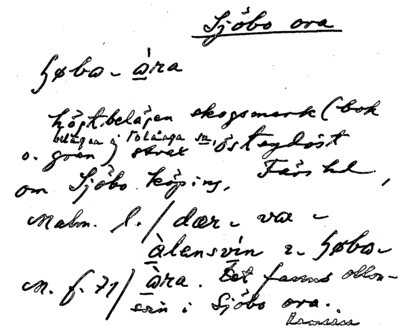 Sjöbo ora
ʃøbω - àra
högt belägen skogsmark (bok
belägen i Tolånga sn
o. gran) strax öst
om Sjöbo köping, Färs hd,
Malm. l. / dær - va -
àlensvin i ʃøbω -
M. f. 71 / àra. Det fanns ollon-
svin i Sjöbo ora.